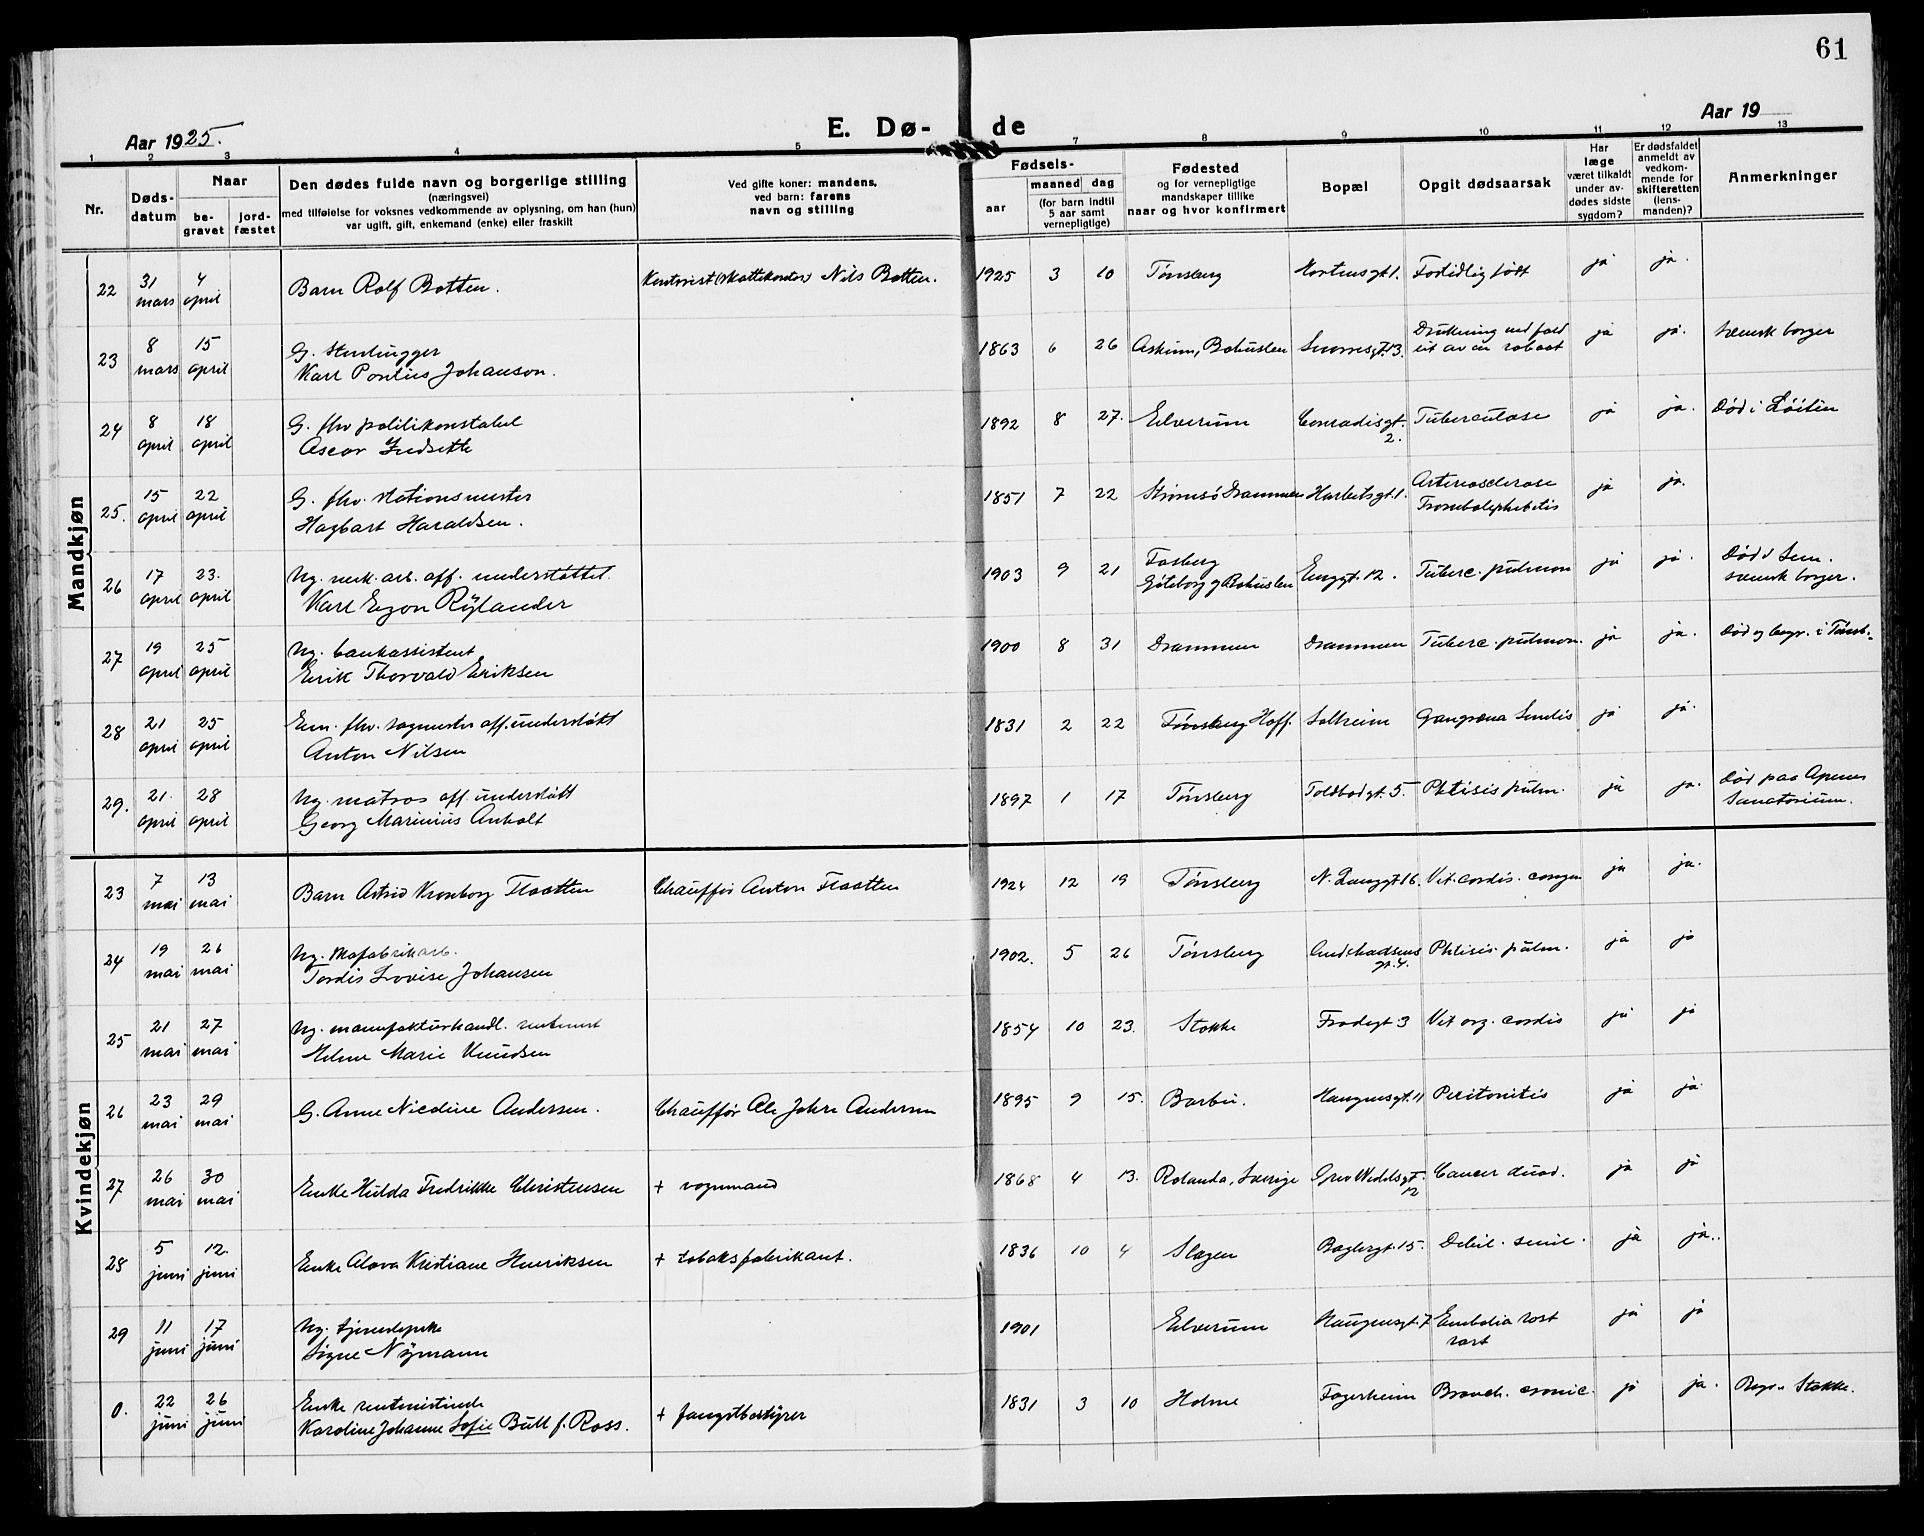 61
Aar 1925.
E. Dø-
de
Aar 19
1 2 3 4 5 7 8 9 10 11 12 13
Nr.
Døds-
datum
Naar
be-
gravet
jord-
fæstet
Den dødes fulde navn og borgerlige stilling
(næringsvei)
med tilføielse for voksnes vedkommende av oplysning, om han (hun)
var ugift, gift, enkemand (enke) eller fraskilt
Ved gifte koner: mandens,
ved barn: farens
navn og stilling
Fødsels-
aar
maaned
dag
(for barn indtil
5 aar samt
vernepligtige)
Fødested
og for vernepligtige
mandskaper tillike
naar og hvor konfirmert
Bopæl
Opgit dødsaarsak
Har
læge
været tilkaldt
under av-
dødes sidste
sygdom?
Er dødsfaldet
anmeldt av
vedkom-
mende for
skifteretten
(lens-
manden)?
Anmerkninger
Mandkjøn
22 31 mars 4 april Barn Rolf Botten. Kontorist (skattekontor) Nils Botten. 1925 3 10 Tønsberg Mortensgt 1. Fortidlig født ja ja.
23 8 mars 15 april G. Stenhugger
Karl Pontius Johanson. 1863 6 26 Askum, Bohuslen Snorresgt. 13. Drukning ved fald
ut av en robaat ja ja. svensk borger
24 8 april 18 april G. fhv politikonstabel
Oscar Indsette 1892 8 27. Elverum Conradisgt.
2. Tuberculose ja ja. Død i Löiten
25. 15 april 22 april G. fhv. stationsmester
Hagbart Haraldsen. 1851 7 22 Strømsö Drammen Harbitsgt. 1. Arteriosclerose
Trombophlebitis ja ja.
26 17 april 23. april Ug. verk. arb. off. understøttet.
Karl Egon Rÿlander 1903 9 21 Fosberg
Göteborg og Bohuslen Enggt. 12. Tuberc. pulmon ja ja. Død i Sem.
svensk borger.
27 19 april 25 april Ug. bankassistent
Erik Thorvald Eriksen 1900 8 31 Drammen Drammen Tuberc. pulmon. ja ja. Død og begr. i Tønsb.
28 21 april 25 april Em. fhv. vognester off. understøtt
Anton Nilsen 1831 2 22 Tønsberg Hoff. Solheim Gangræna Senilis ja ja.
29. 21. april 28 april Ug. matros off. understøtt
Georg Marinius Anholt 1897 1 17 Tønsberg Toldbodgt. 5. Phtisis pulm. ja ja. Død paa Apenes
Sanatorium.
Kvindekjøn
23 7 mai 13 mai Barn Astrid Kronborg Flaatten Chauffør Anton Flaatten 1924 12 19 Tønsberg N. Langgt 16. Vit. cordis. congen ja ja.
24 19 mai 26 mai Ug. skofabrikarb.
Tordis Lovise Johansen 1902. 5 26 Tønsberg
gt. 4. Phtisis. pulm. ja ja
25 21 mai 27 mai Ug. manufakturhandl.
Helene Marie Knudsen 1854 10 23. Stokke Frodegt 3 Vit org. cordis ja ja
26 23 mai 29 mai G. Anne Nicoline Andersen. Chauffør Ole Johan Andersen 1895 9 15. Barbu. Haugensgt. 11 Peritonitis ja ja.
27 26 mai 30 mai Enke Hulda Fredrikke Christensen + vognmand 1868 4 13. Rolanda, Sverige Grev Wedelsgt.
12 Cancer duod. ja ja
28 5 juni 12. juni Enke Alava Kristiane Henriksen + tobaksfabrikant. 1836 10 4 Slagen Baglergt. 15. Debil. senil. ja ja..
29 11 juni 17 juni Ug. tjenestepike
Signe Nÿmann 1901 Elverum Haugensgt. 7 Embolia post
part ja ja
0. 22 juni 26 juni Enke rentenistinde
Karoline Johanne Sofie Bull f. Ross. + fangstbestyrer 1831 3 10 Holme Fagerheim Bronch. cronic. ja ja. Begr. Stokke.